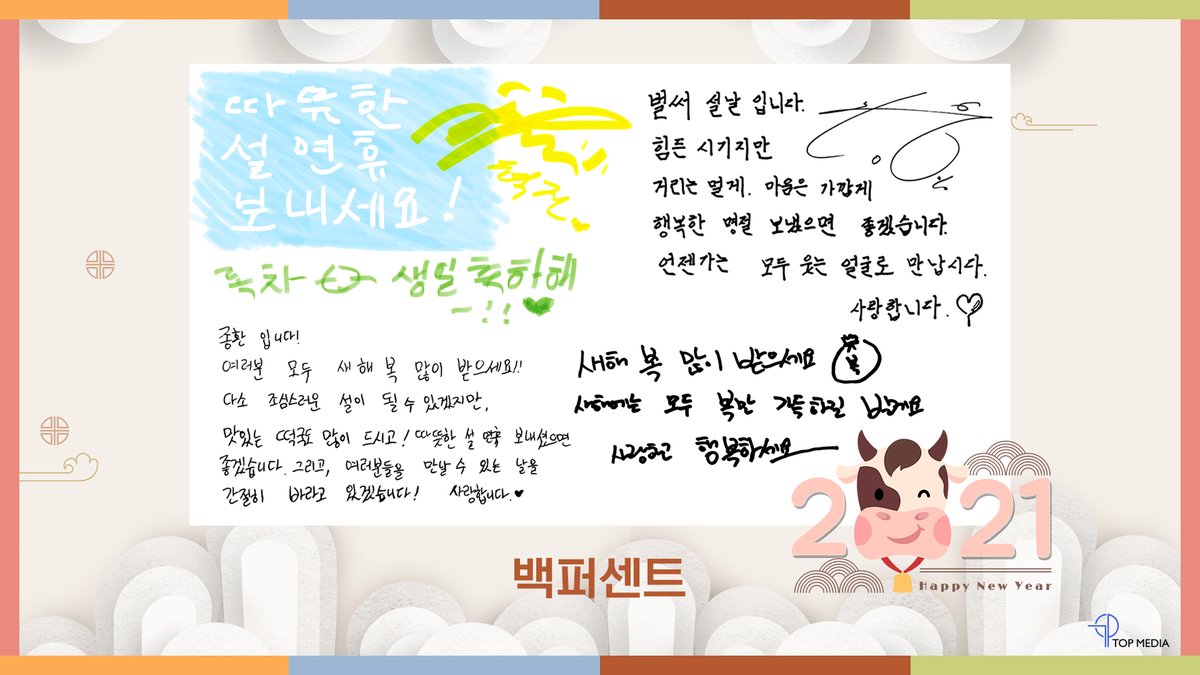 따뜻한
설 연휴
보내세요!
혁진
록차 생일 축하해
~!!
종환 입니다!
여러분 모두 새해 복 많이 받으세요!!
다소 조심스러운 설이 될 수 있겠지만,
맛있는 떡국도 많이 드시고! 따뜻한 설 연휴 보내셨으면
좋겠습니다. 그리고, 여러분들을 만날 수 있는 날을
간절히 바라고 있겠습니다! 사랑합니다.♥
벌써 설날 입니다.
힘든 시기지만
거리는 멀게. 마음은 가깝게
행복한 명절 보냈으면 좋겠습니다.
언젠가는 모두 웃는 얼굴로 만납시다.
사랑합니다.
새해 복 많이 받으세요
새해에는 모두 복만 가득하길 바랄게요
사랑하고 행복하세요
2021
Happy New Year
백퍼센트
TOP MEDIA